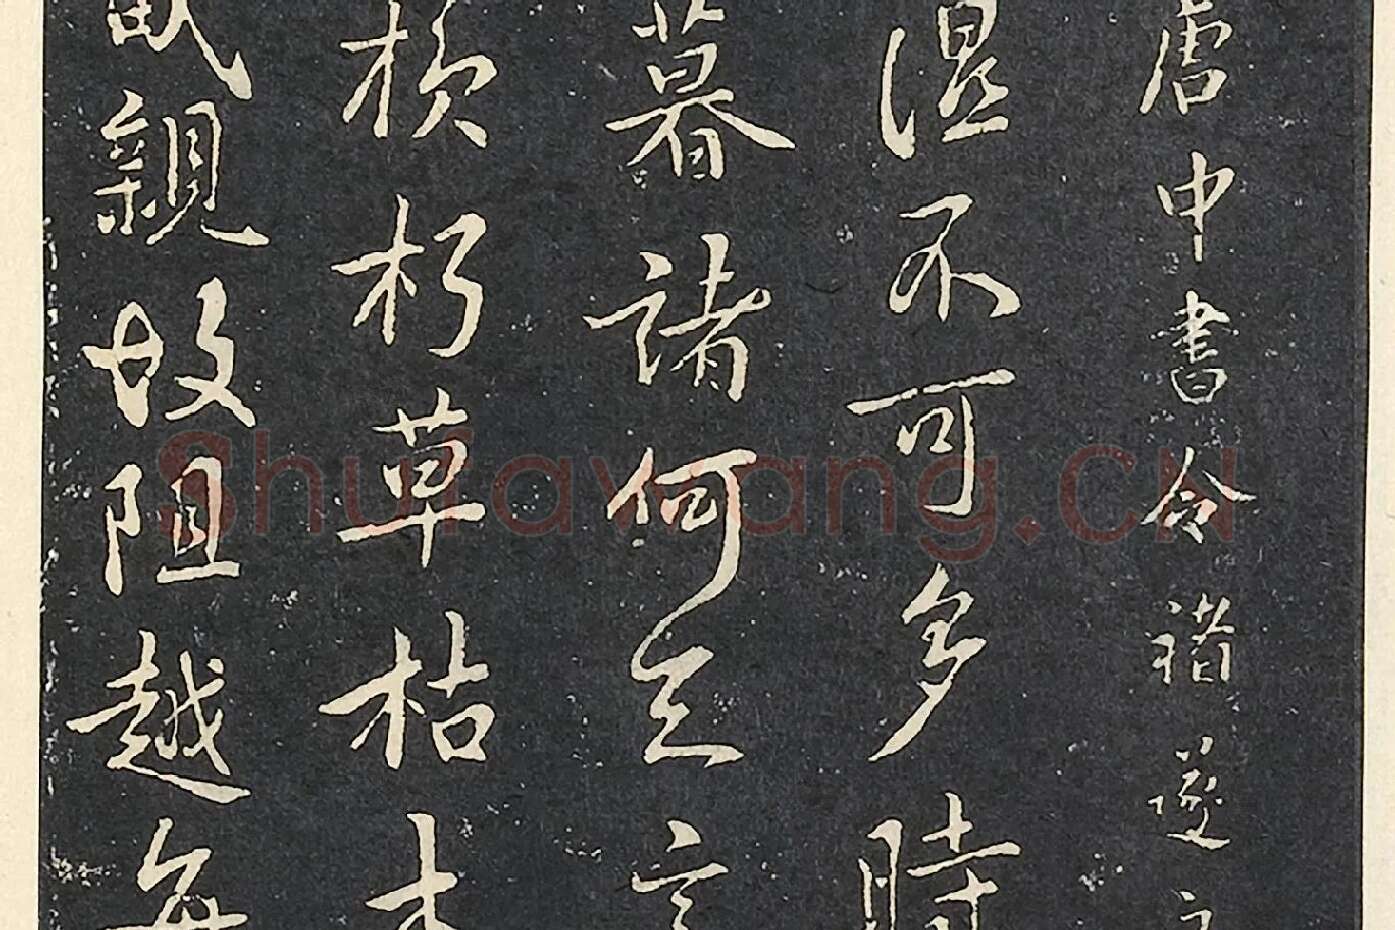 唐中書令褚遂
濕不可多時
暮諸何足言
朽草枯木
親故阻越每
Shufawang.CN